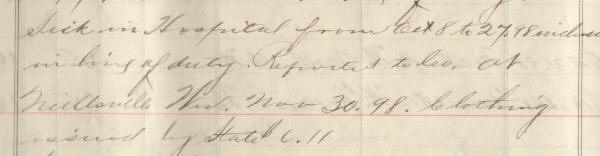 Sick in Hospital from Oct 8 to 27, 98 inclusive
in line of duty. Reported to Co. at
Neillsville Wis. Nov 30. 98. Clothing
issued by State 6.11